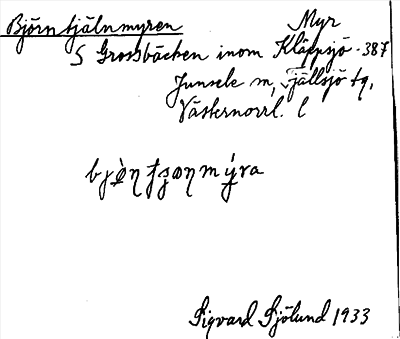 Björntjälnmyren Myr
S Grossbäcken inom Kläppsjö - 387
Junsele sn, Fjällsjö tg,
Västernorrl. l
Sigvard Sjölund 1933